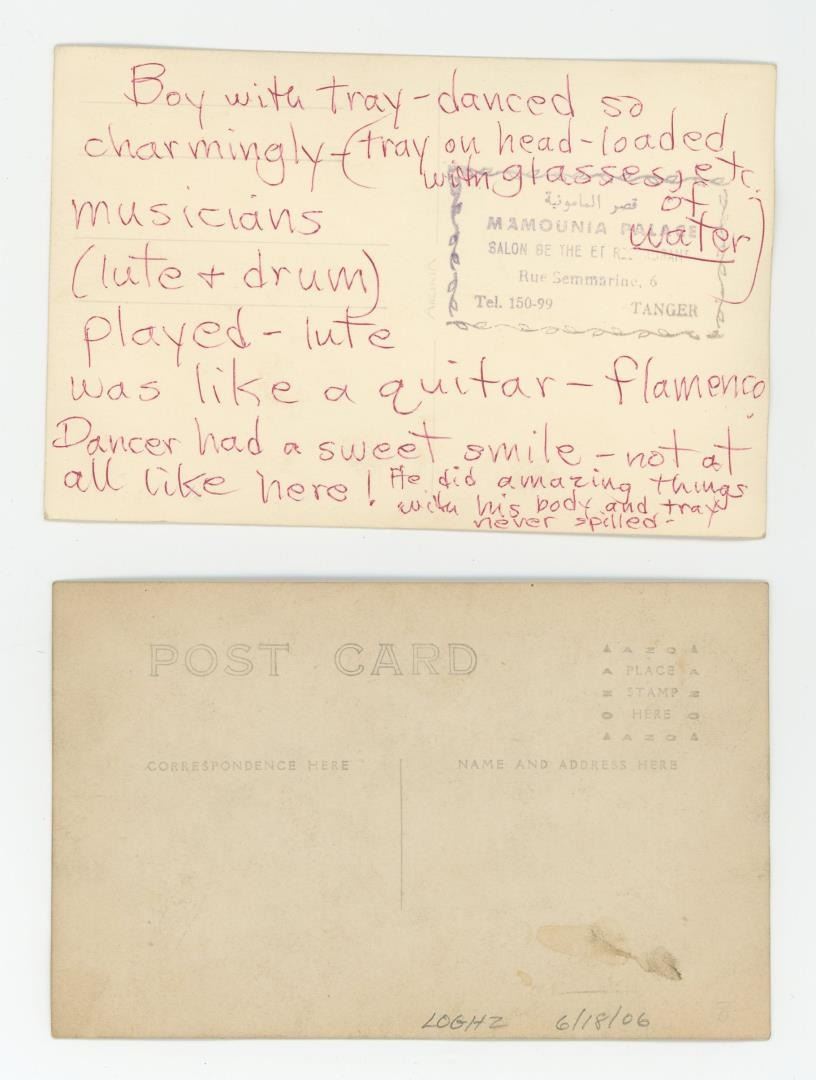 Boy with tray - danced so
charmingly - (tray on head - loaded
with glasses, etc.
of
water)
musicians
(lute + drum)
played - lute
was like a quitar - flamenco
Dancer had a sweet smile - not at
all like here! He did amazing things
with his body and tray
never spilled -
قصر المامونية
MAMOUNIA PALACE
SALON DE THE ET RESTAURANT
Rue Semmarine, 6
Tel. 150-99 TANGER
POST CARD
AZO
PLACE
STAMP
HERE
AZO
CORRESPONDENCE HERE
NAME AND ADDRESS HERE
LOGHZ 6/18/06